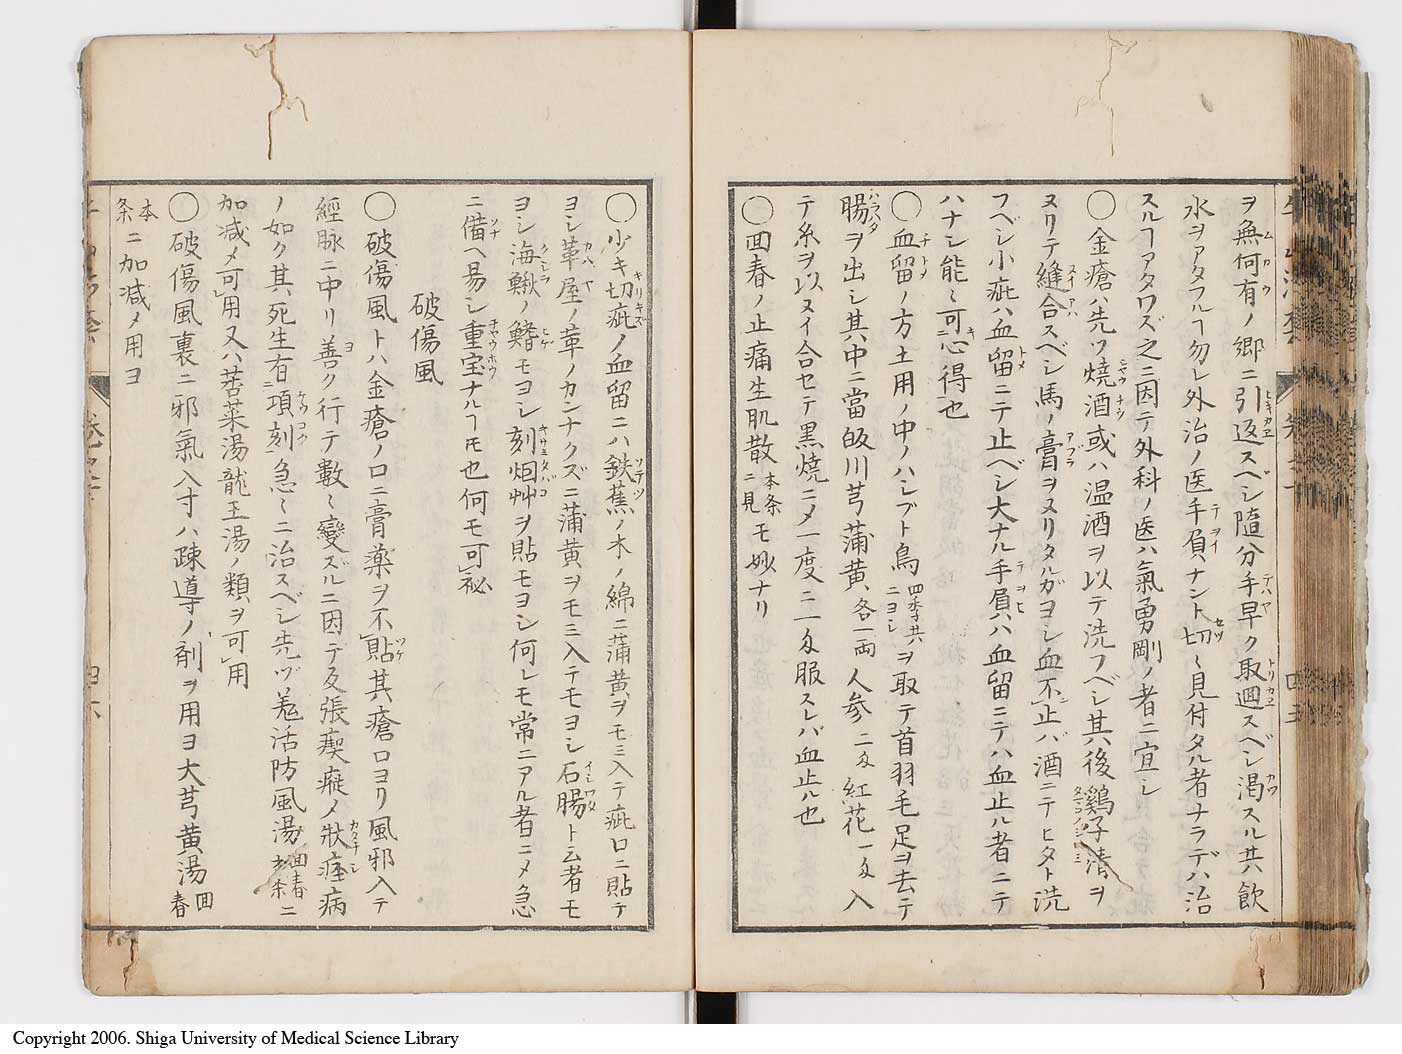 ヲ無何有ノ郷ニ引返スベシ隨分手早ク取廻スベシ渇スル共飲
水ヲアタフルヿ勿レ外治ノ医手負ナント切〻見付タル者ナラデハ治
スルヿアタワズ之ニ因テ外科ノ医ハ氣勇剛ノ者ニ宜シ
◯金瘡ハ先ツ焼酒或ハ温酒ヲ以テ洗フベシ其後鷄子清ヲ
ヌリテ縫合スベシ馬ノ膏ヲヌリタルガヨシ血不止バ酒ニテヒタト洗
フベシ小疵ハ血留ニテ止ベシ大ナル手負ハ血留ニテハ血止ル者ニテ
ハナシ能〻可心得也
◯血留ノ方土用ノ中ノハシブト烏四季共ニヨシヲ取テ首羽毛足ヲ去テ
腸ヲ出シ其中ニ當皈川芎蒲黄各一両人参二匁紅花一匁入
テ糸ヲ以ヌイ合セテ黒焼ニメ一度ニ一匁服スレバ血止ル也
◯回春ノ止痛生肌散本条ニ見モ妙ナリ
◯少キ切疵ノ血留ニハ鉄蕉ノ木ノ綿ニ蒲黄ヲモミ入テ疵口ニ貼テ
ヨシ革屋ノ革ノカンナクズニ蒲黄ヲモミ入テモヨシ石腸ト云者モ
ヨシ海鰌ノ鰭モヨシ刻烟艸ヲ貼モヨシ何レモ常ニアル者ニメ急
ニ備ヘ易シ重宝ナルヿモ也何モ可秘
破傷風
◯破傷風トハ金瘡ノ口ニ膏薬ヲ不貼其瘡口ヨリ風邪入テ
經脉ニ中リ善ク行テ數〻變ズルニ因テ反張瘈瘲メ狀痙病
ノ如ク其死生有項刻急〻ニ治スベシ先ヅ羗活防風湯回春本条ニ
加减メ可用又ハ苦菜湯龍王湯ノ類ヲ可用
◯破傷風裏ニ邪氣入寸ハ疎導ノ剤ヲ用ヨ大芎黄湯回春
本条ニ加减メ用ヨ